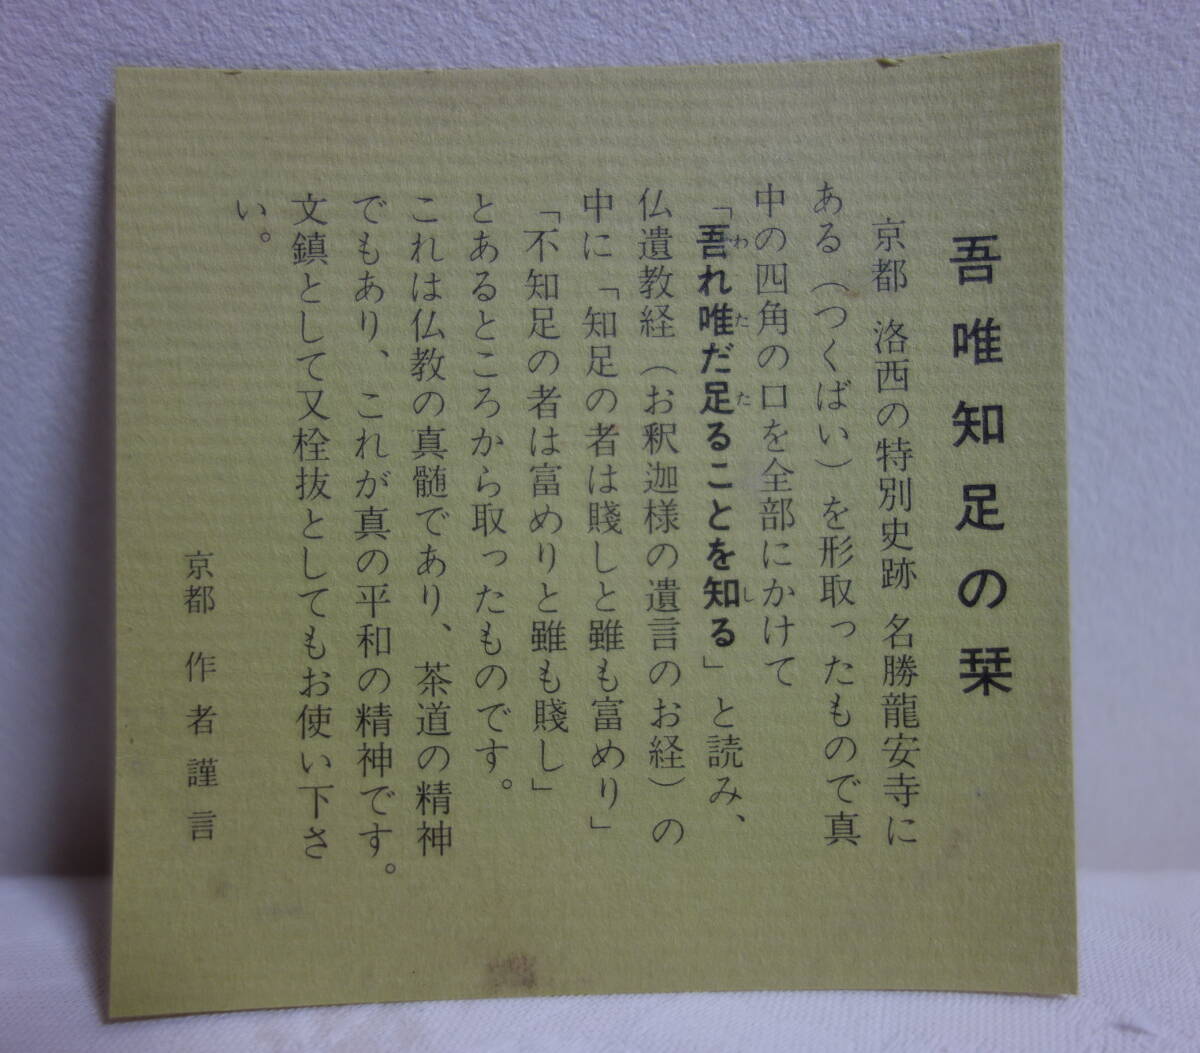 吾唯知足の栞
京都 洛西の特別史跡 名勝龍安寺に
ある（つくばい）を形取ったもので真
中の四角の口を全部にかけて
「吾れ唯だ足ることを知る」と読み、
仏遺教経（お釈迦様の遺言のお経）の
中に「知足の者は賤しと雖も富めり」
「不知足の者は富めりと雖も賤し」
とあるところから取ったものです。
これは仏教の真髄であり、茶道の精神
でもあり、これが真の平和の精神です。
文鎮として又栓抜としてもお使い下さ
い。
京都 作者謹言